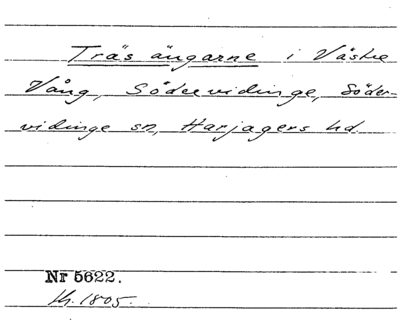 Träs ängarne i Västre
Vång, Södervidinge, Söder-
vidinge sn, Harjagers hd.
Nr 5622.
Kh. 1805.